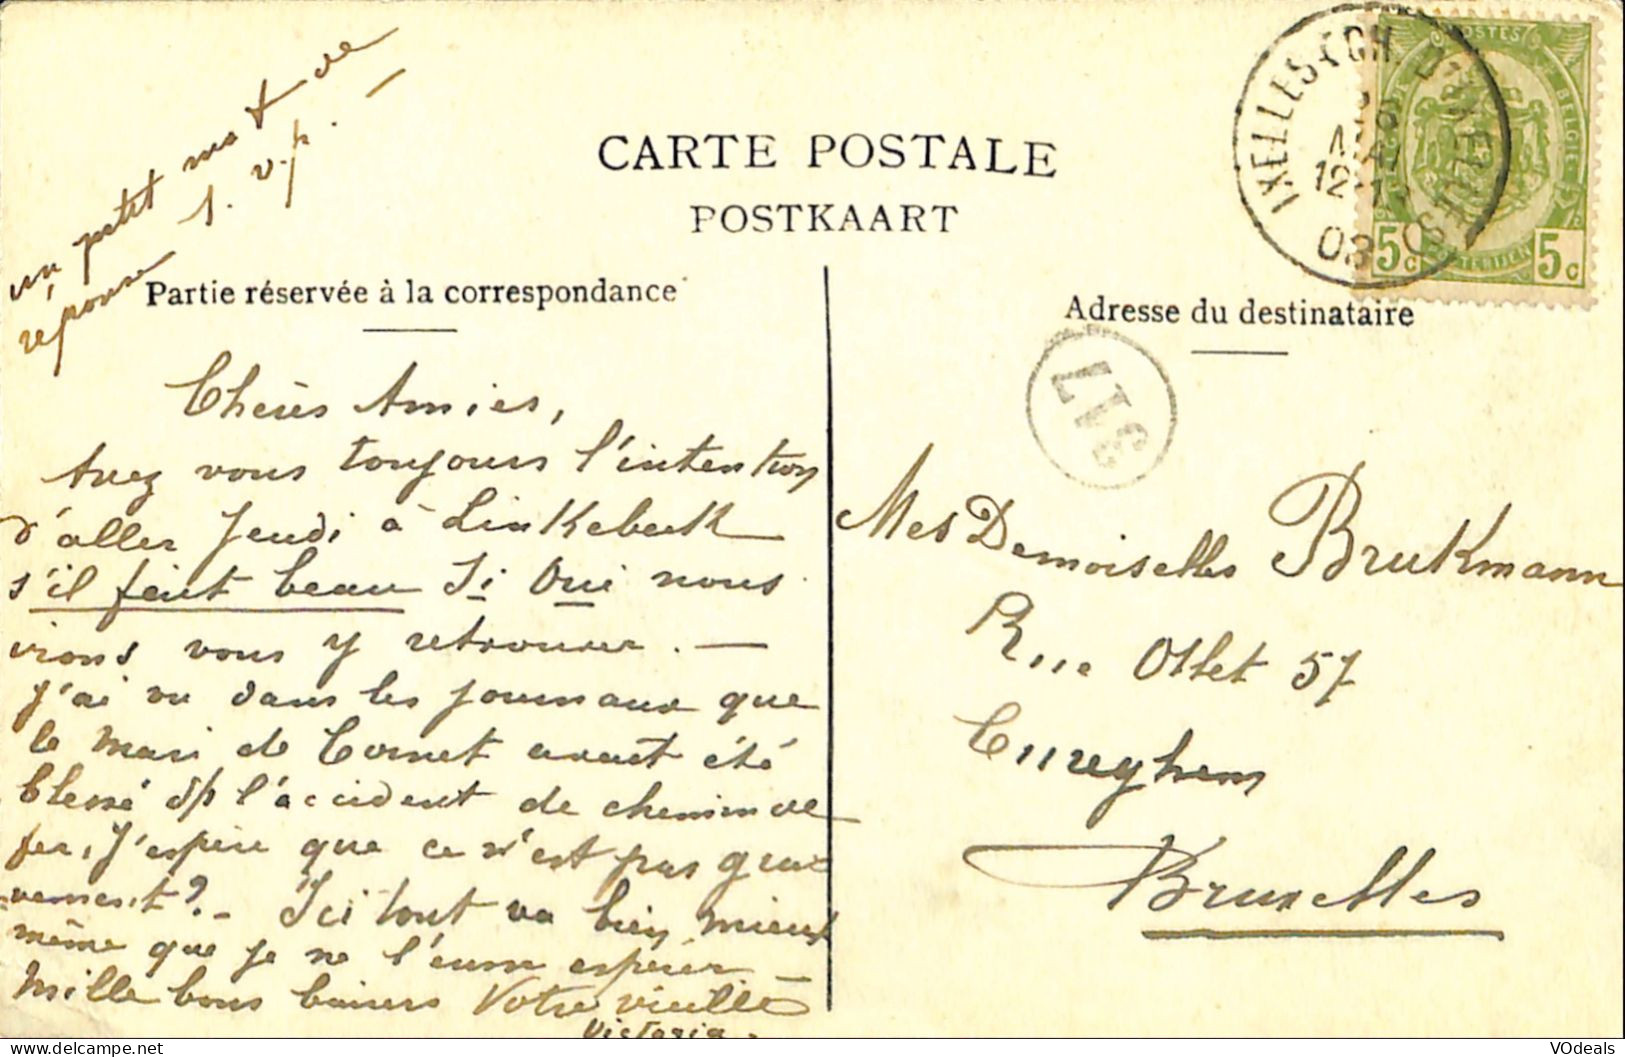 un petit mot de
réponse s. v. p.
CARTE POSTALE
POSTKAART
Partie réservée à la correspondance
Adresse du destinataire
POSTES
BELGIE
5c 5c
IXELLES (CH. D'IXELLES)
MAI
12
08
317
Chères Amies,
Avez vous toujours l'intention
d'aller Jeudi à Linkebeek
s'il fait beau Si Oui nous
irons vous y retrouver. —
J'ai vu dans les journaux que
le mari de Cornet avait été
blessé ds l'accident de chemin de
fer, J'espère que ce n'est pas gra-
vement? - Ici tout va bien mieux
même que je ne l'eusse espérer —
Mille bons baisers Votre vieille
Victoria -
MesDemoiselles Brukmann
Rue Otlet 57
Cureghem
Bruxelles
VOdeals